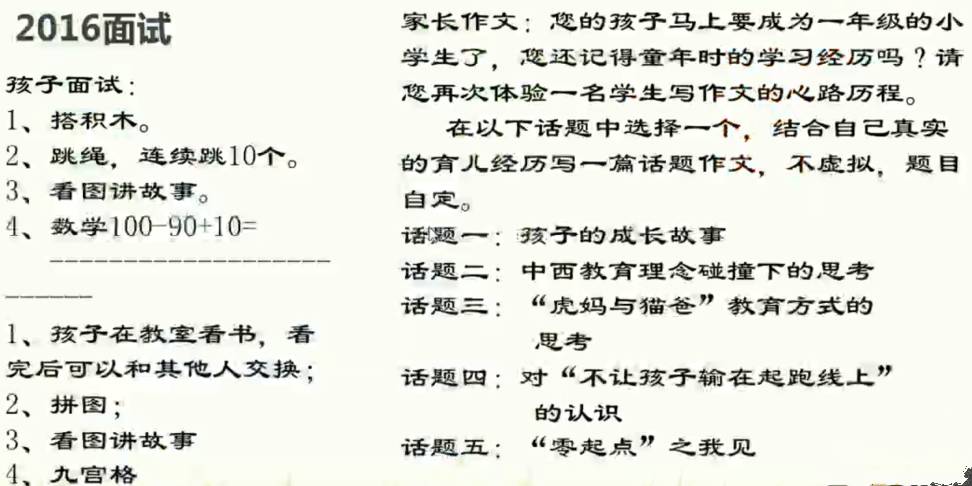 2016面试
孩子面试：
1、搭积木。
2、跳绳，连续跳10个。
3、看图讲故事。
4、数学100-90+10=
1、孩子在教室看书，看
完后可以和其他人交换；
2、拼图；
3、看图讲故事
4、九宫格
家长作文：您的孩子马上要成为一年级的小
学生了，您还记得童年时的学习经历吗？请
您再次体验一名学生写作文的心路历程。
在以下话题中选择一个，结合自己真实
的育儿经历写一篇话题作文，不虚拟，题目
自定。
话题一：孩子的成长故事
话题二：中西教育理念碰撞下的思考
话题三：“虎妈与猫爸”教育方式的
思考
话题四：对“不让孩子输在起跑线上”
的认识
话题五：“零起点”之我见